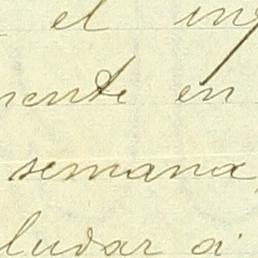 el ing
mente en
semana,
ludar a